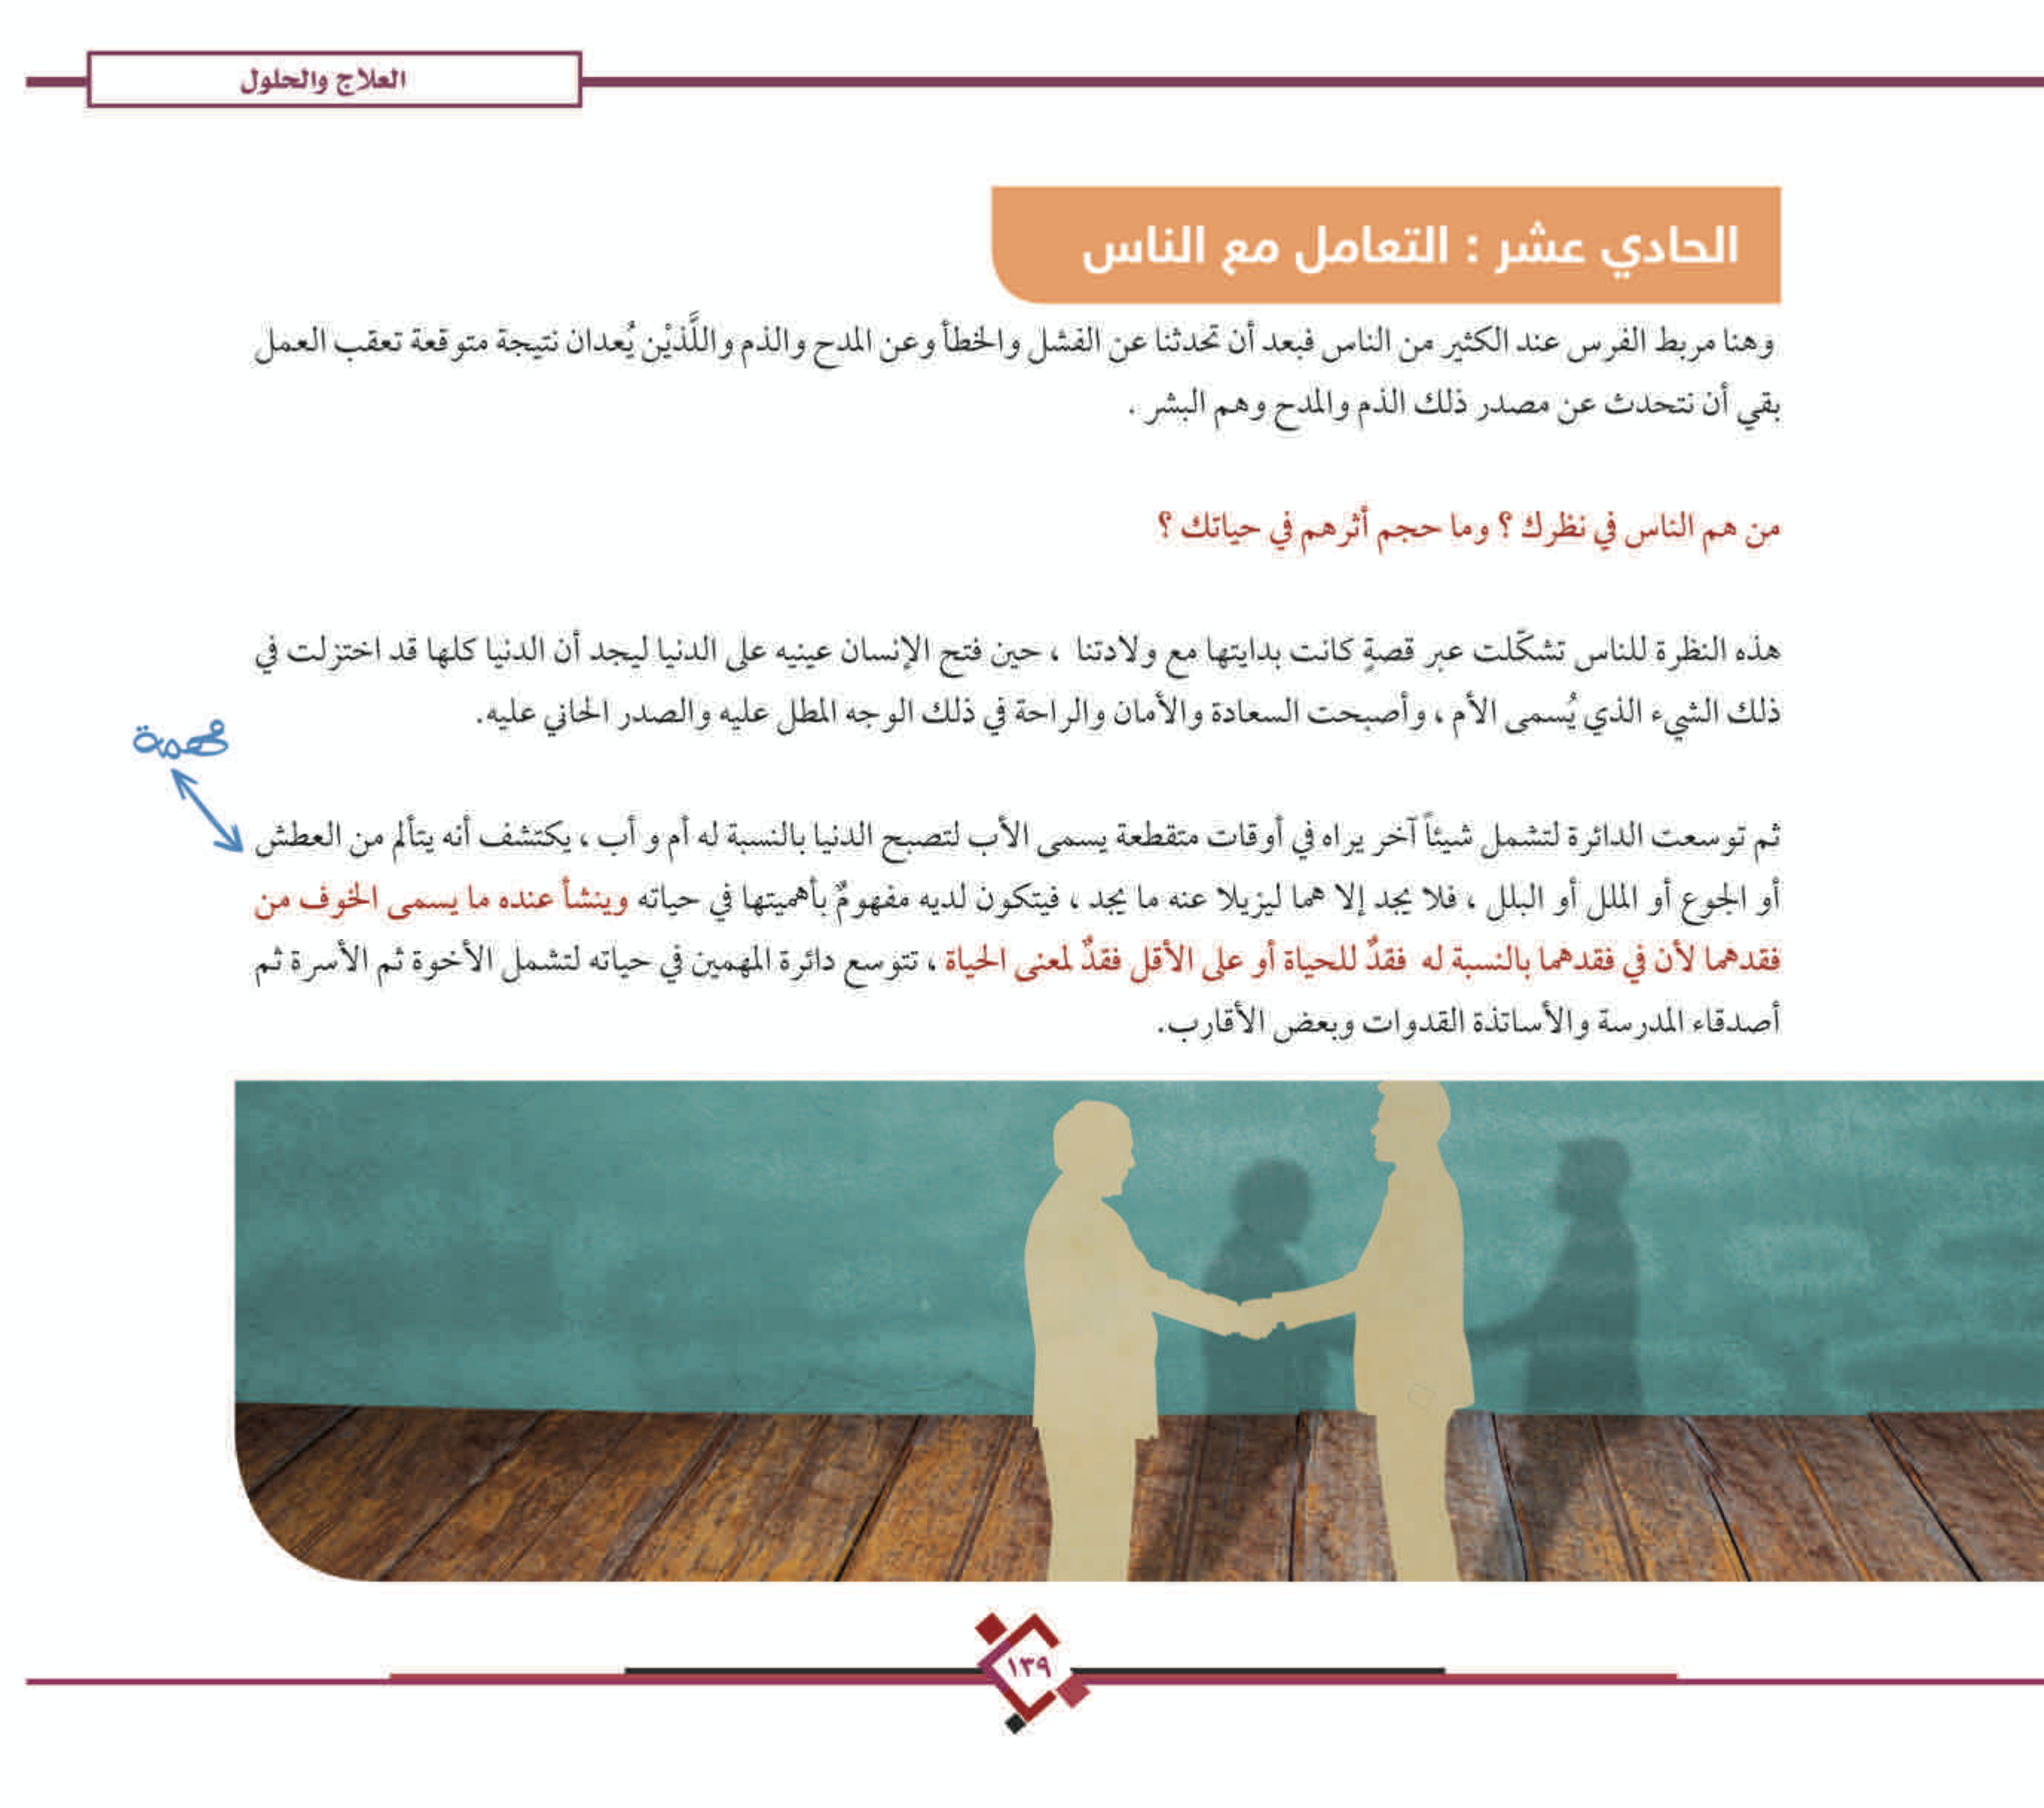 العلاج والحلول
الحادي عشر : التعامل مع الناس
وهنا مربط الفرس عند الكثير من الناس فبعد أن تحدثنا عن الفشل والخطأ وعن المدح والذم واللَّذيْن يُعدان نتيجة متوقعة تعقب العمل
بقي أن نتحدث عن مصدر ذلك الذم والمدح وهم البشر .
من هم الناس في نظرك ؟ وما حجم أثرهم في حياتك ؟
هذه النظرة للناس تشكّلت عبر قصةٍ كانت بدايتها مع ولادتنا ، حين فتح الإنسان عينيه على الدنيا ليجد أن الدنيا كلها قد اختزلت في
ذلك الشيء الذي يُسمى الأم ، وأصبحت السعادة والأمان والراحة في ذلك الوجه المطل عليه والصدر الحاني عليه.
مهمة
ثم توسعت الدائرة لتشمل شيئاً آخر يراه في أوقات متقطعة يسمى الأب لتصبح الدنيا بالنسبة له أم و أب ، يكتشف أنه يتألم من العطش
أو الجوع أو الملل أو البلل ، فلا يجد إلا هما ليزيلا عنه ما يجد ، فيتكون لديه مفهومٌ بأهميتها في حياته وينشأ عنده ما يسمى الخوف من
فقدهما لأن في فقدهما بالنسبة له فقدٌ للحياة أو على الأقل فقدٌ لمعنى الحياة ، تتوسع دائرة المهمين في حياته لتشمل الأخوة ثم الأسرة ثم
أصدقاء المدرسة والأساتذة القدوات وبعض الأقارب.
١٣٩